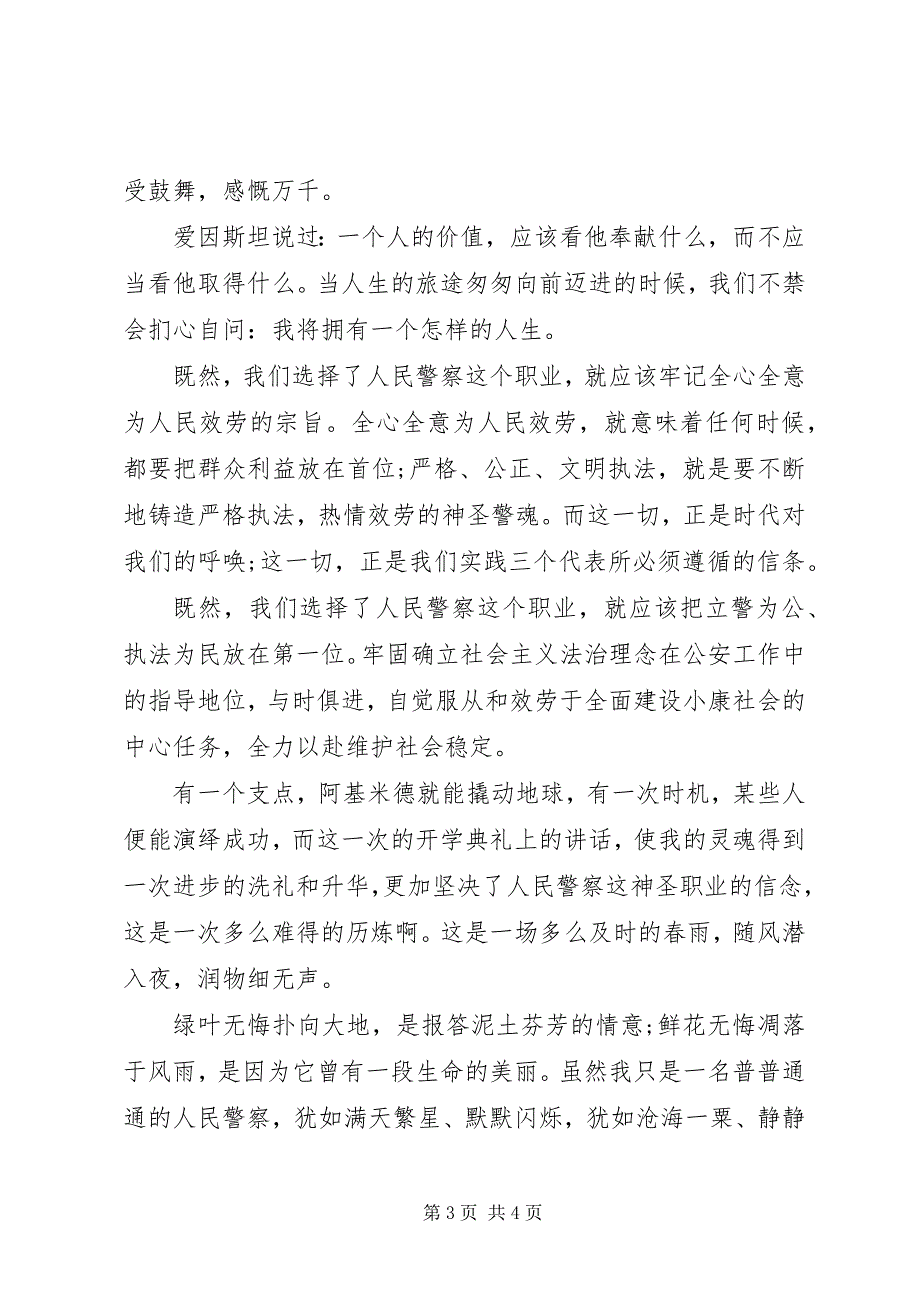 受鼓舞，感慨万千。
爱因斯坦说过：一个人的价值，应该看他奉献什么，而不应
当看他取得什么。当人生的旅途匆匆向前迈进的时候，我们不禁
会扪心自问：我将拥有一个怎样的人生。
既然，我们选择了人民警察这个职业，就应该牢记全心全意
为人民效劳的宗旨。全心全意为人民效劳，就意味着任何时候，
都要把群众利益放在首位;严格、公正、文明执法，就是要不断
地铸造严格执法，热情效劳的神圣警魂。而这一切，正是时代对
我们的呼唤;这一切，正是我们实践三个代表所必须遵循的信条。
既然，我们选择了人民警察这个职业，就应该把立警为公、
执法为民放在第一位。牢固确立社会主义法治理念在公安工作中
的指导地位，与时俱进，自觉服从和效劳于全面建设小康社会的
中心任务，全力以赴维护社会稳定。
有一个支点，阿基米德就能撬动地球，有一次时机，某些人
便能演绎成功，而这一次的开学典礼上的讲话，使我的灵魂得到
一次进步的洗礼和升华，更加坚决了人民警察这神圣职业的信念，
这是一次多么难得的历炼啊。这是一场多么及时的春雨，随风潜
入夜，润物细无声。
绿叶无悔扑向大地，是报答泥土芬芳的情意;鲜花无悔凋落
于风雨，是因为它曾有一段生命的美丽。虽然我只是一名普普通
通的人民警察，犹如满天繁星、默默闪烁，犹如沧海一粟、静静
第 3 页 共 4 页